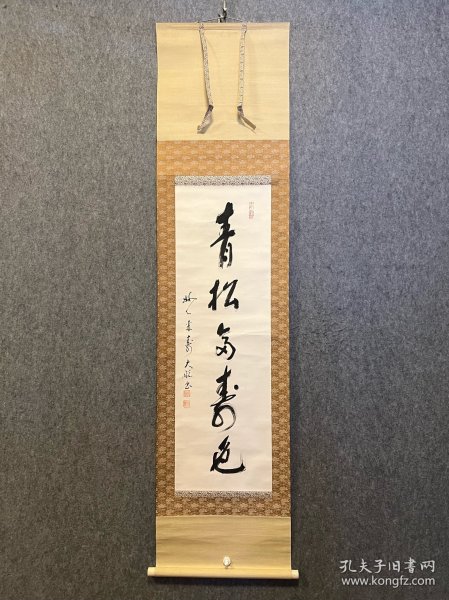 青松多壽色
八十壽 大
孔夫子旧书网
www.kongfz.com